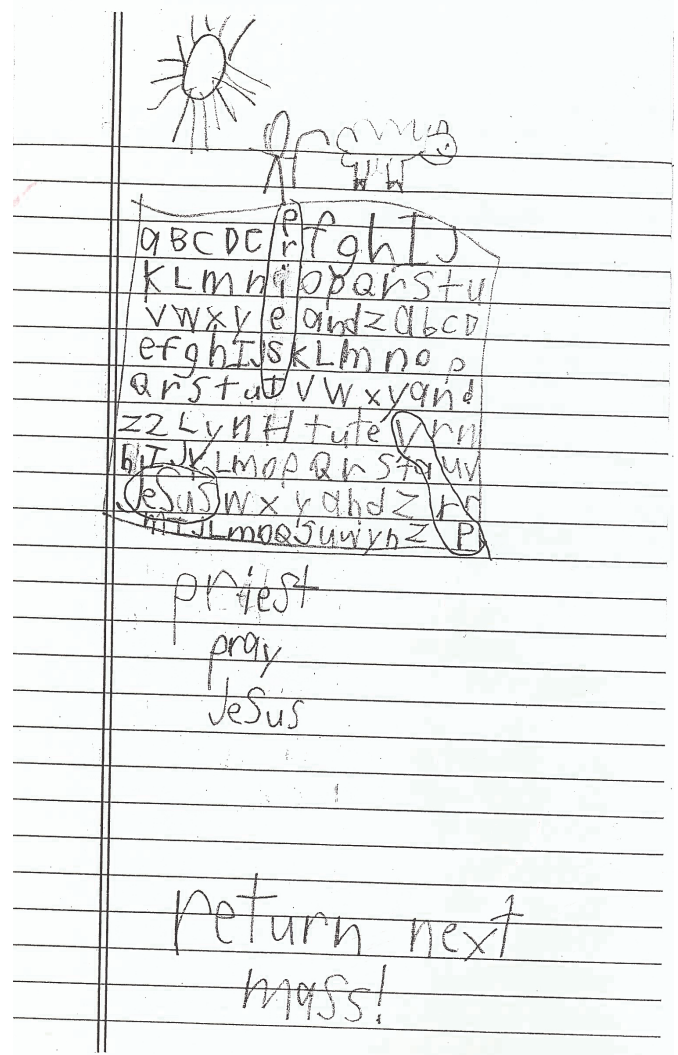 P
aBCDC r fghIJ
KLmn i opQrStu
VWxyy e andzabcD
efghIJS KLmnop
QrStut VWxyand
ZZLynH tute yrn
hIJKLmopQrStauv
JeSuSWxyandZrr
mIJLmopQSuwynZ P
priest
pray
JeSus
return next
mass!